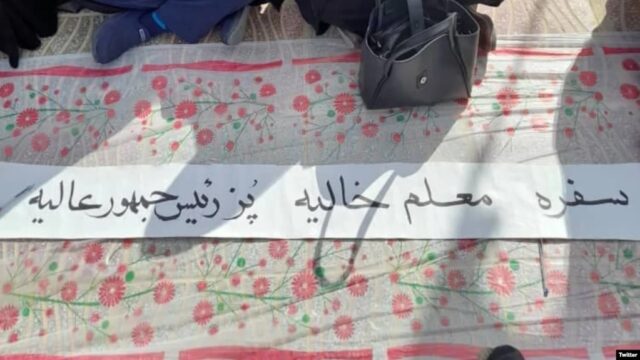 سفره معلم خالیه پُز رئیس جمهور عالیه
Twitter